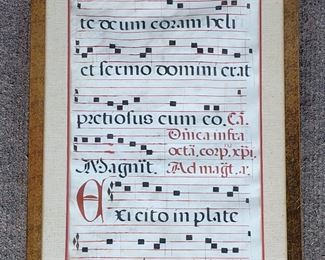 te deum coram heli
et sermo domini erat
pretiosus cum eo. Cã.
Dñica infra
octã. corp̃. xp̃i.
Magnĩt. Ad magt̃. aʳ.
Exi cito in plate